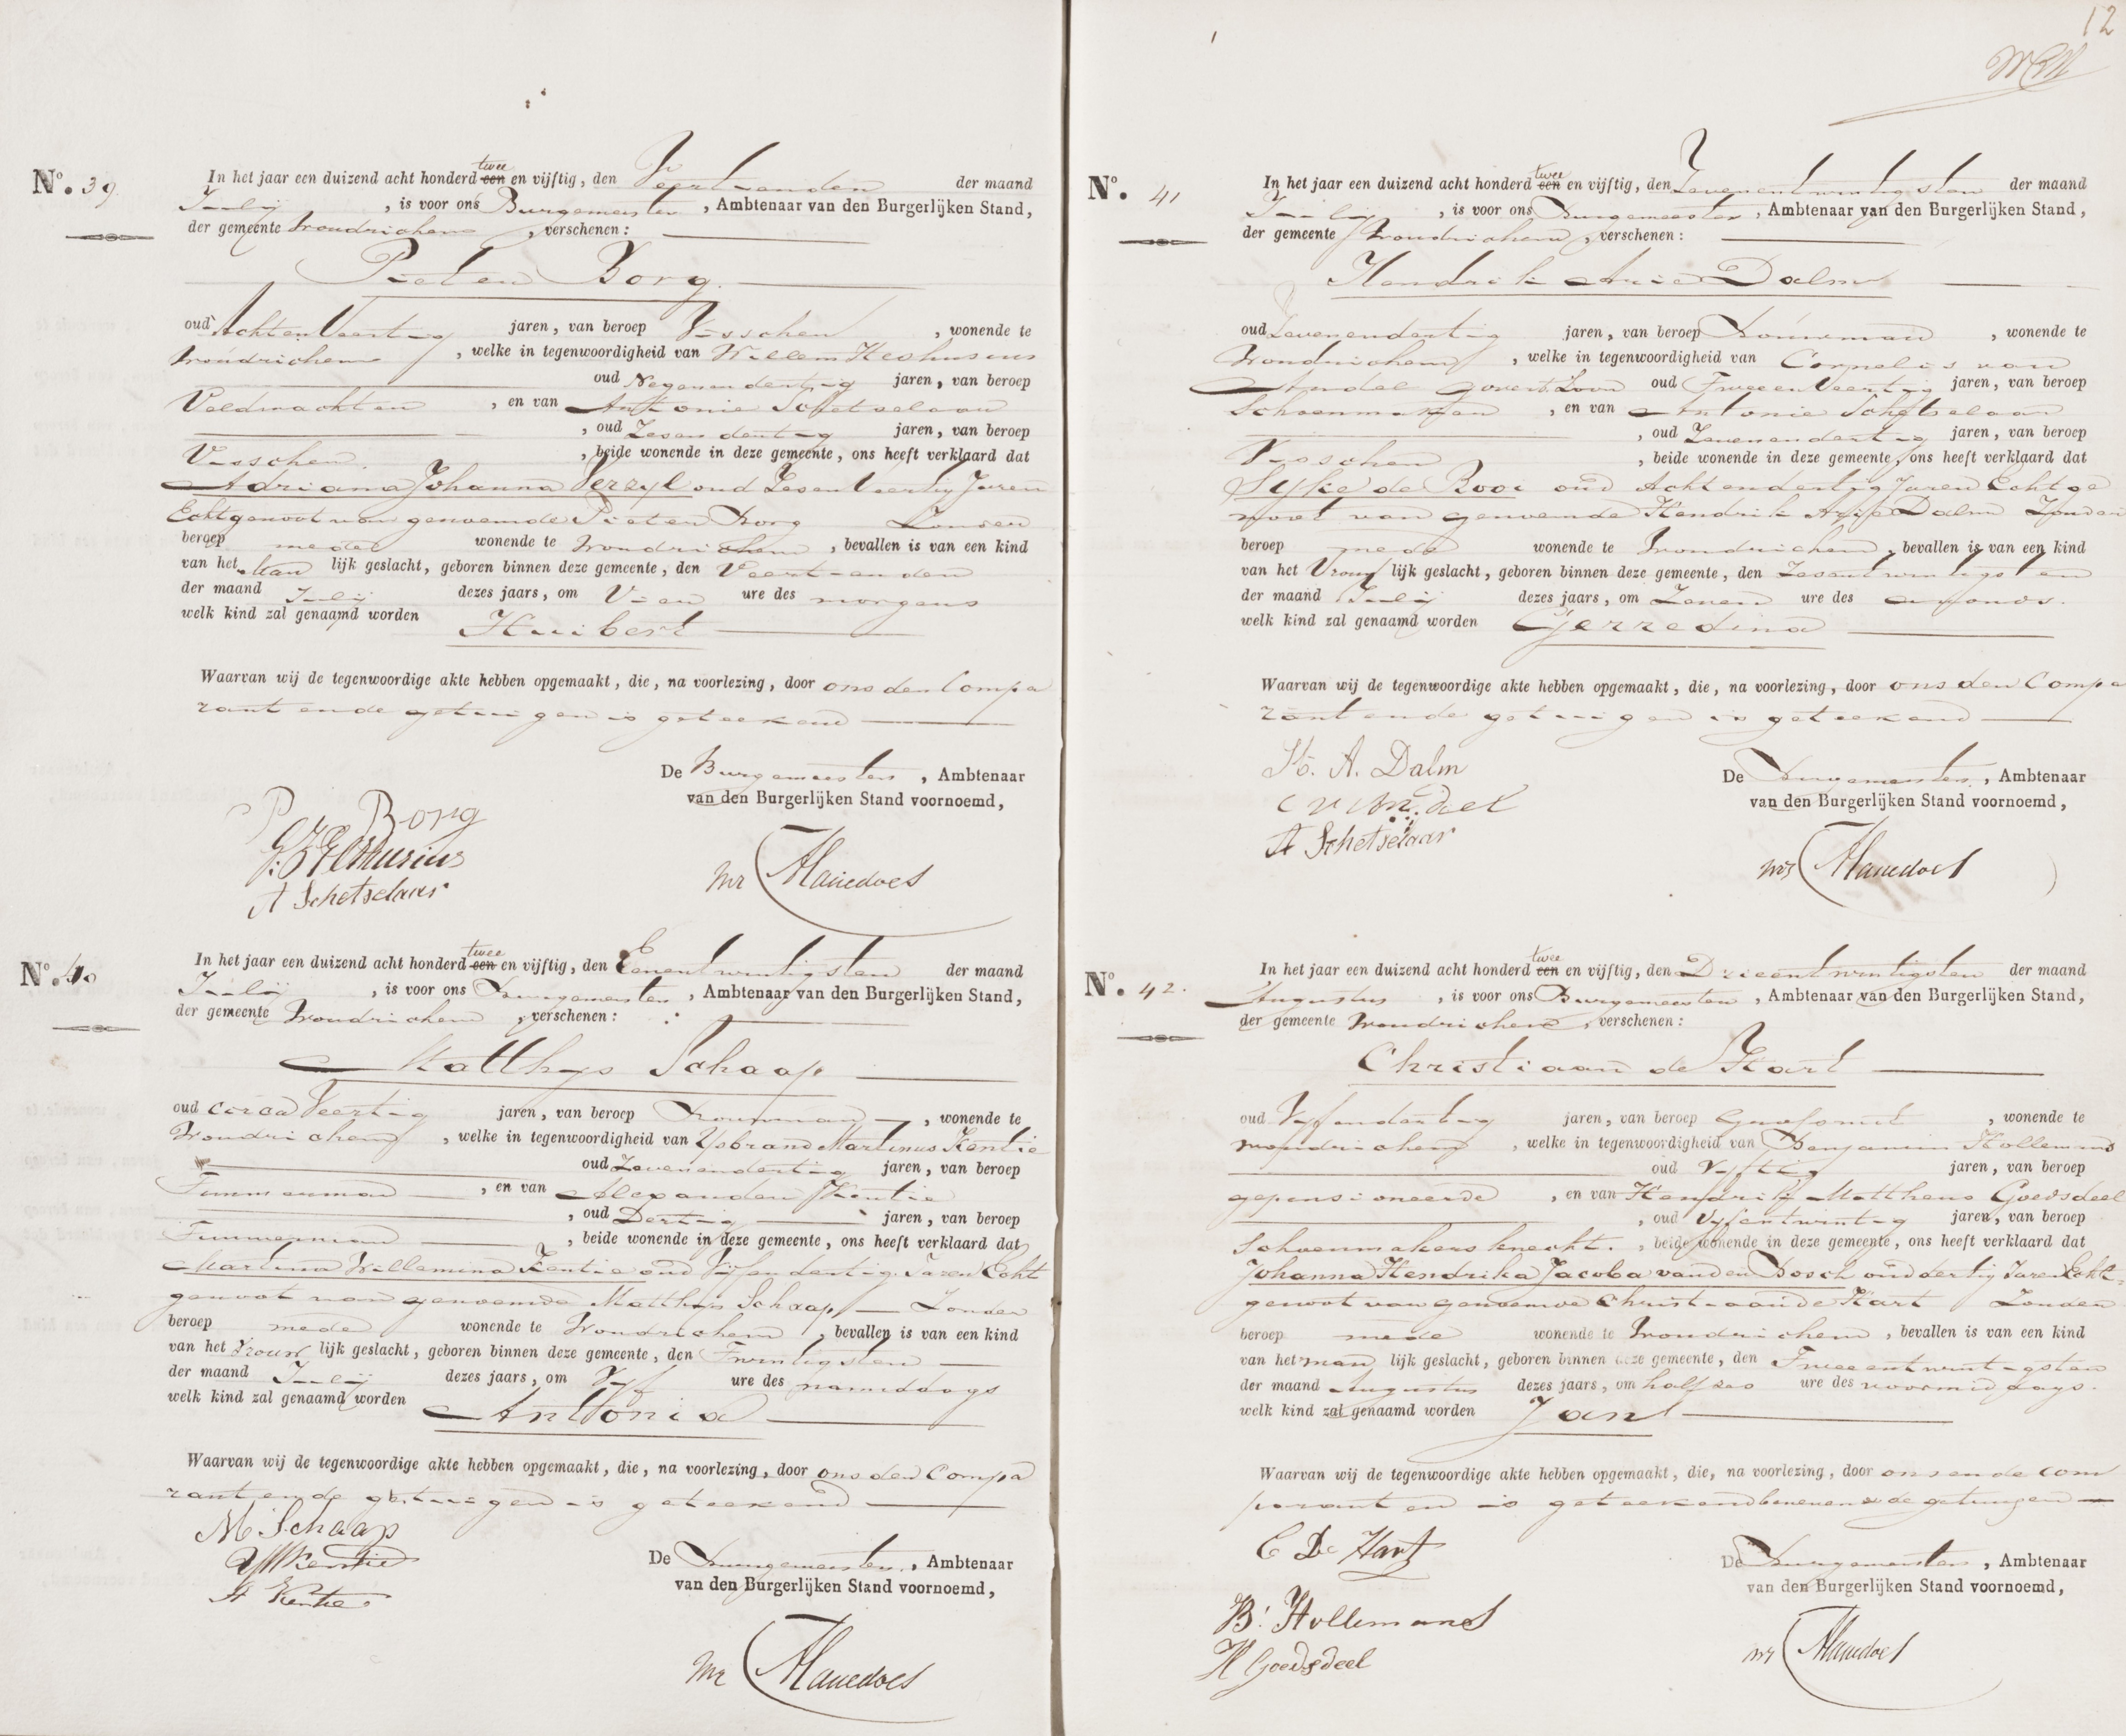 No. 39
In het jaar een duizend acht honderd een twee en vijftig, den Veertienden der maand
Julij, is voor ons Burgemeester, Ambtenaar van den Burgerlijken Stand,
der gemeente Woudrichem, verschenen:
Pieter Borg.
oud Acht en Veertig jaren, van beroep Visscher, wonende te
Woudrichem, welke in tegenwoordigheid van Willem Heshusius
oud Negenendertig jaren, van beroep
Veldwachter, en van Antonie Schetselaar
, oud Zesendertig jaren, van beroep
Visscher, beide wonende in deze gemeente, ons heeft verklaard dat
Adriana Johanna Verzyl oud Zesen Veertig Jaren
Echtgenoot van genoemde Pieter Borg Zonder
beroep mede wonende te Woudrichem, bevallen is van een kind
van het Man lijk geslacht, geboren binnen deze gemeente, den Veertienden
der maand Julij dezes jaars, om Vier ure des morgens
welk kind zal genaamd worden Huibert
Waarvan wij de tegenwoordige akte hebben opgemaakt, die, na voorlezing, door ons den Compa
rant en de getuigen is geteekend
De Burgemeester, Ambtenaar
van den Burgerlijken Stand voornoemd,
P Borg
Heshusius
A Schetselaar
No. 40
In het jaar een duizend acht honderd een twee en vijftig, den Eenentwintigsten der maand
Julij, is voor ons Burgemeester, Ambtenaar van den Burgerlijken Stand,
der gemeente Woudrichem, verschenen:
Matthys Schaap
oud circa Veertig jaren, van beroep Bouwman, wonende te
Woudrichem, welke in tegenwoordigheid van Ysbrand Martinus Kentie
oud Zevenendertig jaren, van beroep
Timmerman, en van Alexander Kentie
, oud Dertig jaren, van beroep
Timmerman, beide wonende in deze gemeente, ons heeft verklaard dat
Martina Willemina Kentie oud Vijfendertig Jaren Echt
genoot van genoemde Matthys Schaap Zonder
beroep mede wonende te Woudrichem, bevallen is van een kind
van het Vrouw lijk geslacht, geboren binnen deze gemeente, den Twintigsten
der maand Julij dezes jaars, om Vijf ure des namiddags
welk kind zal genaamd worden Antonia
Waarvan wij de tegenwoordige akte hebben opgemaakt, die, na voorlezing, door ons den Compa
rant en de getuigen is geteekend
M Schaap
YM Kentie
A Kentie
De Burgemeester, Ambtenaar
van den Burgerlijken Stand voornoemd,
12
No. 41
In het jaar een duizend acht honderd een twee en vijftig, den Zevenentwintigsten der maand
Julij, is voor ons Burgemeester, Ambtenaar van den Burgerlijken Stand,
der gemeente Woudrichem, verschenen:
Hendrik Arie Dalm
oud Zevenendertig jaren, van beroep Bouwman, wonende te
Woudrichem, welke in tegenwoordigheid van Cornelis van
Andel Govert Zoon oud Tweeen Veertig jaren, van beroep
Schoenmaker, en van Antonie Schetselaar
, oud Zevenendertig jaren, van beroep
Visscher, beide wonende in deze gemeente, ons heeft verklaard dat
Syke de Rooi oud Achtendertig Jaren Echtge
noot van genoemde Hendrik Arie Dalm Zonder
beroep mede wonende te Woudrichem, bevallen is van een kind
van het Vrouw lijk geslacht, geboren binnen deze gemeente, den Zesentwintigsten
der maand Julij dezes jaars, om Zeven ure des avonds.
welk kind zal genaamd worden Gerredina
Waarvan wij de tegenwoordige akte hebben opgemaakt, die, na voorlezing, door ons den Compa
rant en de getuigen is geteekend
H. A. Dalm
C v Andel
A Schetselaar
De Burgemeester, Ambtenaar
van den Burgerlijken Stand voornoemd,
No. 42.
In het jaar een duizend acht honderd een twee en vijftig, den Drieentwintigsten der maand
Augustus, is voor ons Burgemeester, Ambtenaar van den Burgerlijken Stand,
der gemeente Woudrichem, verschenen:
Christiaan de Hart
oud Vyfendertig jaren, van beroep Grofsmit, wonende te
Woudrichem, welke in tegenwoordigheid van Benjamin Hollemans
oud Vyftig jaren, van beroep
gepensioneerde, en van Hendrik Mattheus Goedsdeel
, oud Vyfentwintig jaren, van beroep
Schoenmakers knecht., beide wonende in deze gemeente, ons heeft verklaard dat
Johanna Hendrika Jacoba van den Bosch oud dertig Jaren Echt-
genoot van genoemde Christiaan de Hart Zonder
beroep mede wonende te Woudrichem, bevallen is van een kind
van het man lijk geslacht, geboren binnen deze gemeente, den Tweeentwintigsten
der maand Augustus dezes jaars, om half zes ure des voormiddags.
welk kind zal genaamd worden Jan
Waarvan wij de tegenwoordige akte hebben opgemaakt, die, na voorlezing, door ons en de com
parant en is geteekend benevens de getuigen
C De Hart
B. Hollemans
H Goedsdeel
De Burgemeester, Ambtenaar
van den Burgerlijken Stand voornoemd,